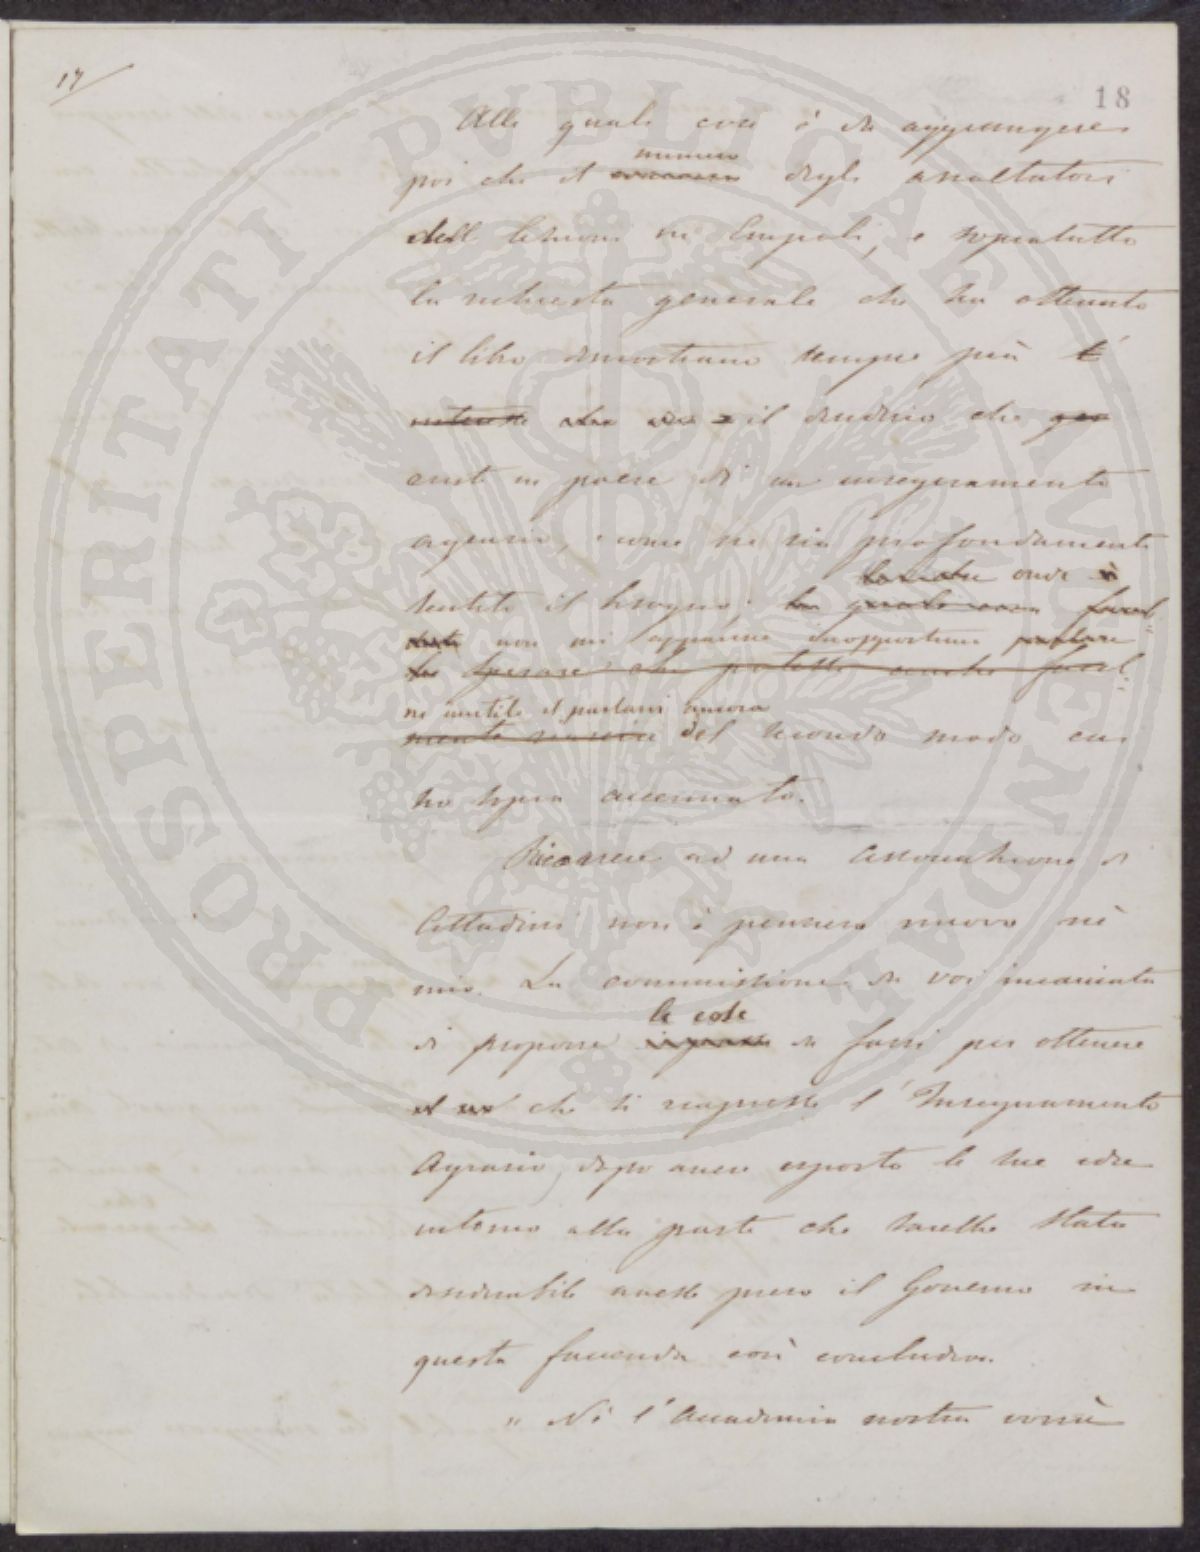 17/
18
Alle quali cose è da aggiungere
numero
poi che il concorso degli ascoltatori
delle lezioni in Empoli, e sopratutto
la richiesta generale che ha ottenuto
il libro dimostrano sempre più
il desiderio che
esiste in paese di un insegnamento
agrario, e come ne sia profondamente
onde
sentito il bisogno; la quale cosa
non mi apparirà inopportuno parlare
sperare che potesse anche facil
nè inutile il parlarvi ancora
mente del secondo modo cui
ho sopra accennato.
Ricorrere ad una associazione di
Cittadini non è pensiero nuovo nè
mio. La commissione da voi incaricata
le cose
di proporre da farsi per ottenere
che si riaprisse l'Insegnamento
Agrario, dopo avere esposto le sue idee
intorno alla parte che sarebbe stato
desiderabile avesse preso il Governo in
questa faccenda così concludeva.
" Nè l'Accademia nostra vorrà
PROSPERITATI PVBLICAE AVGENDAE